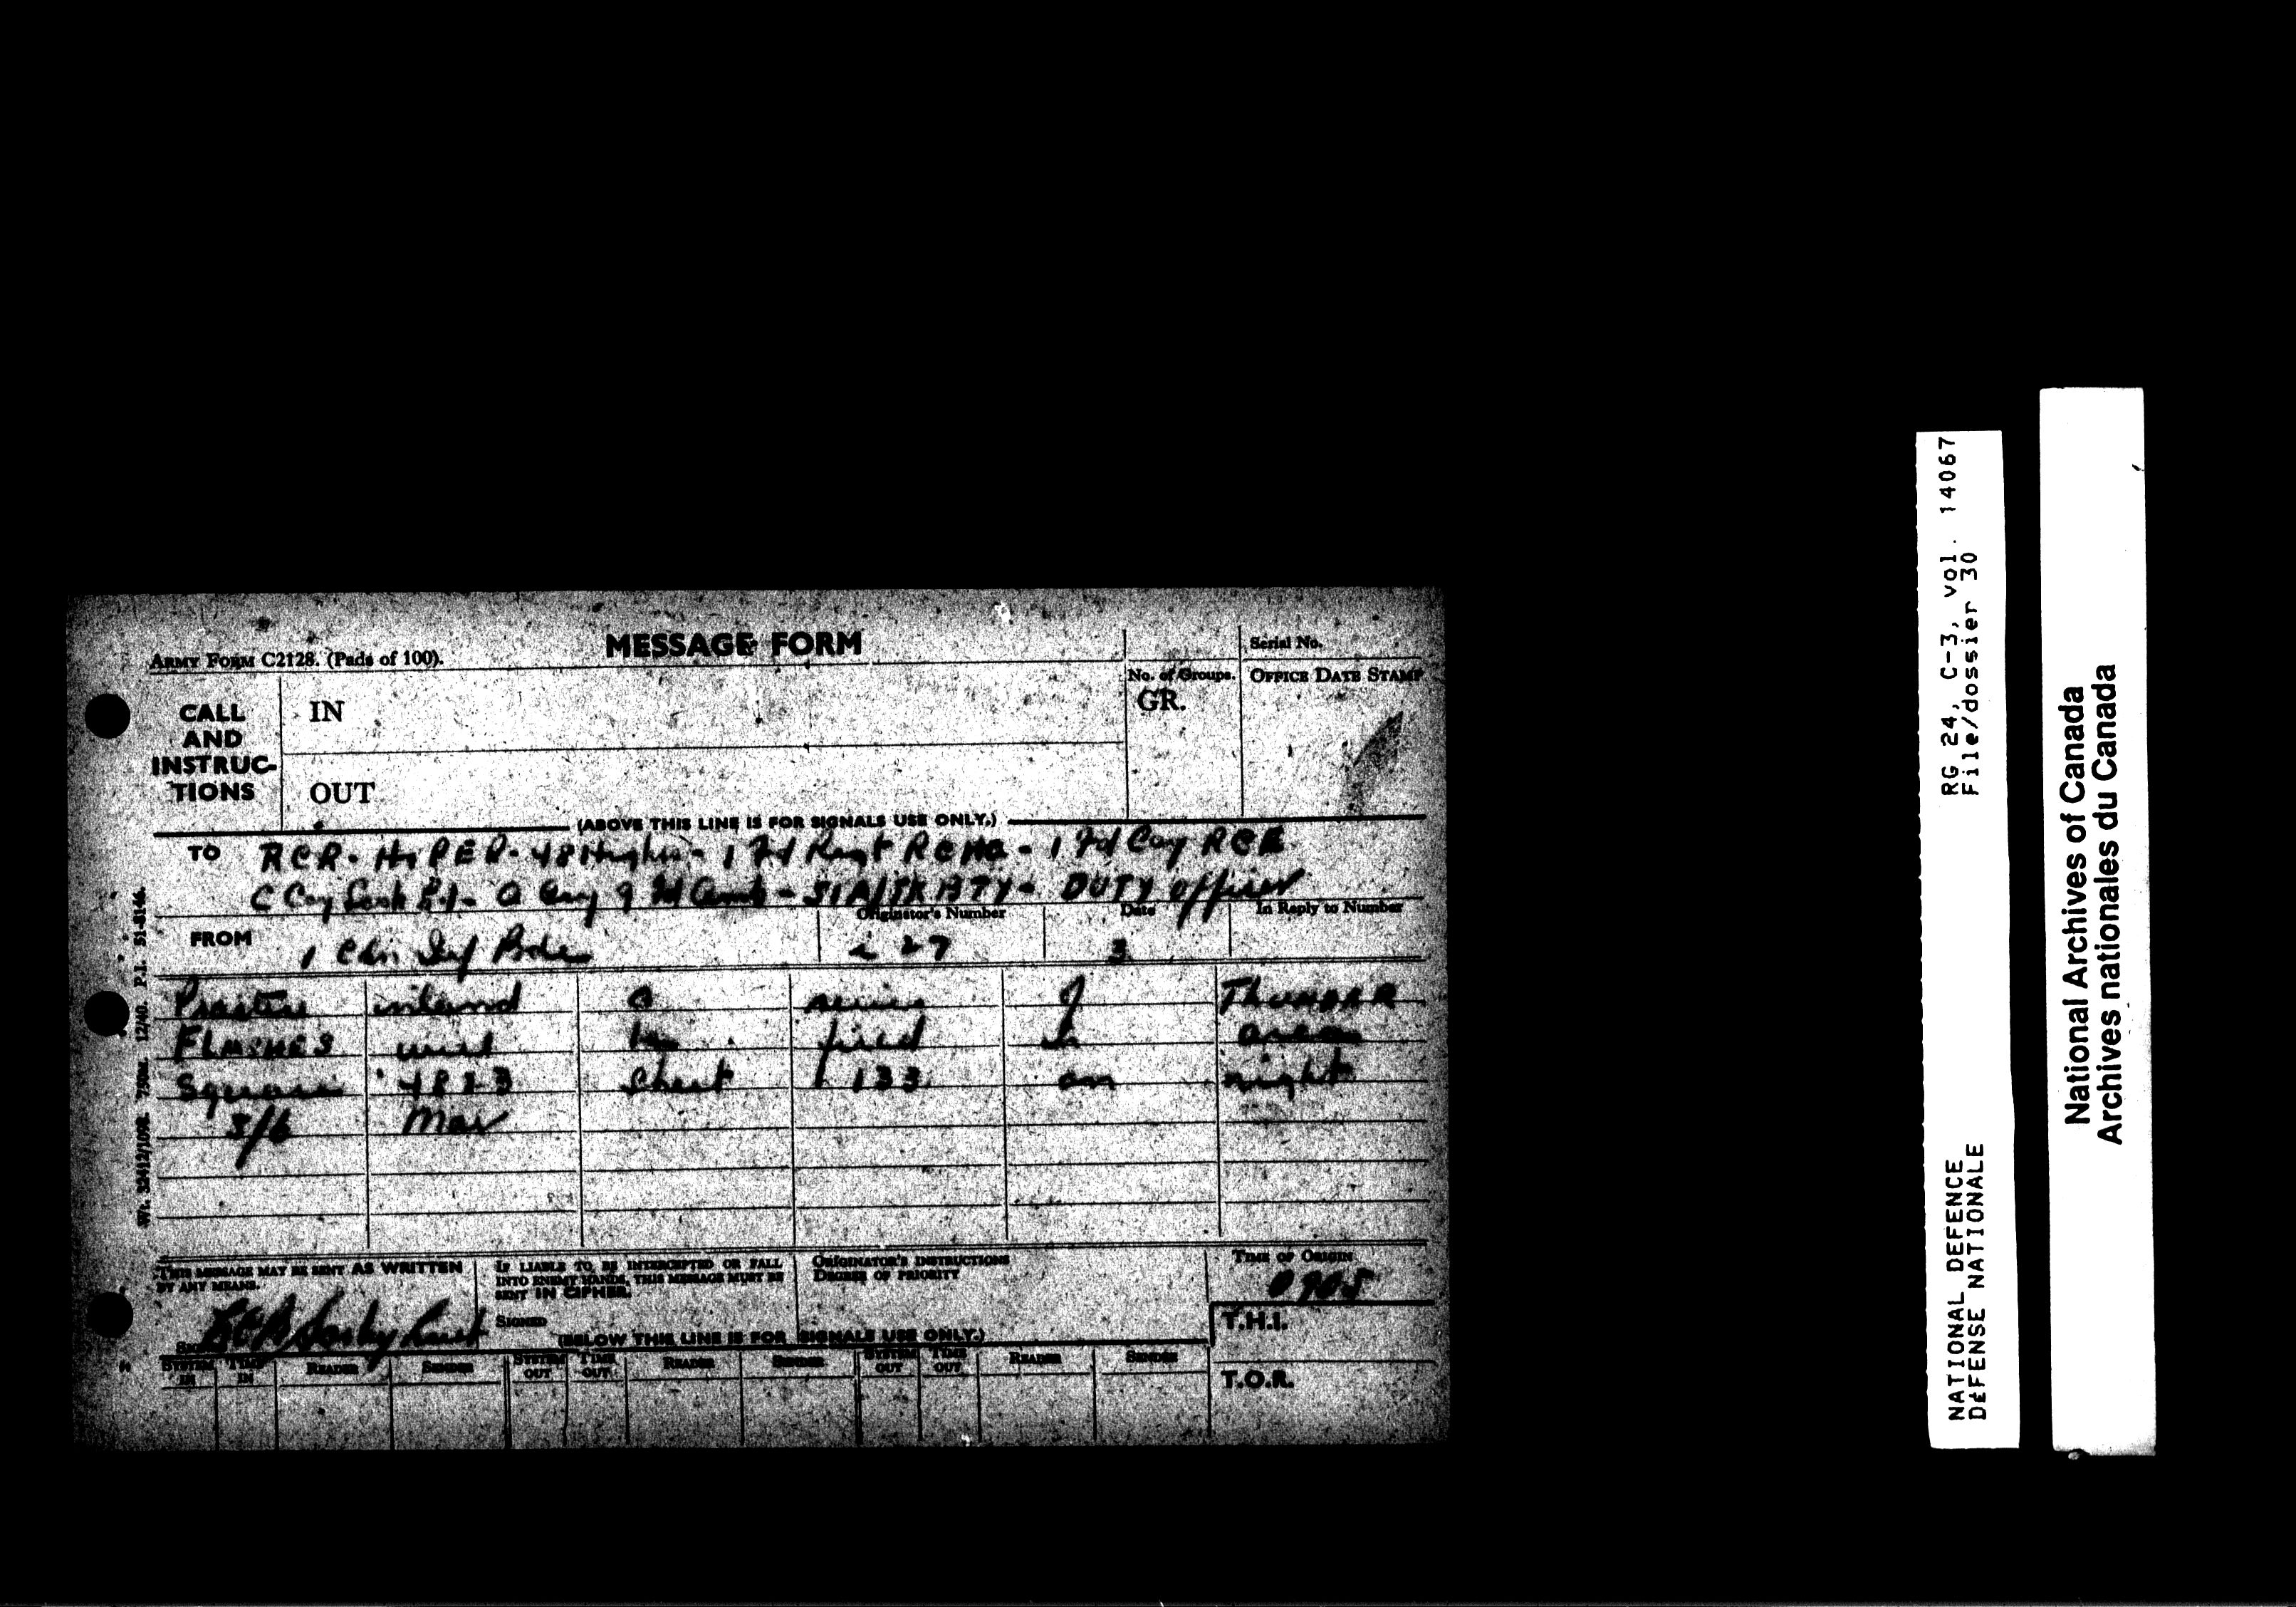 MESSAGE FORM
ARMY FORM C2128. (Pads of 100).
Serial No.
No. of Groups.
GR.
OFFICE DATE STAMP
CALL AND INSTRUC-TIONS
IN
OUT
(ABOVE THIS LINE IS FOR SIGNALS USE ONLY.)
TO RCR - H P E R - 48 Highrs - 1 Fd Regt RCHA - 1 Fd Coy RCE
C Coy Sask L.I. - A Coy 9 Fd Amb - 51 A/TK BTY - DUTY Officer
Originator's Number
Date
In Reply to Number
FROM 1 Cdn Inf Bde
27
3
Practice intend a series of THUNDER
FLASHES will be fired in area
Square 4823 Sheet 133 on night
5/6 Mar
Wt. 32412/1098. 750M. 12/40. P.I. 51-8146.
THIS MESSAGE MAY BE SENT AS WRITTEN BY ANY MEANS.
IF LIABLE TO BE INTERCEPTED OR FALL INTO ENEMY HANDS, THIS MESSAGE MUST BE SENT IN CIPHER.
ORIGINATOR'S INSTRUCTIONS
DEGREE OF PRIORITY
TIME OF ORIGIN
0905
SIGNED
T.H.I.
(BELOW THIS LINE IS FOR SIGNALS USE ONLY.)
SYSTEM IN TIME IN READER SENDER SYSTEM OUT TIME OUT READER SENDER SYSTEM OUT TIME OUT READER SENDER
T.O.R.
RG 24, C-3, vol. 14067
File/dossier 30
NATIONAL DEFENCE
DéFENSE NATIONALE
National Archives of Canada
Archives nationales du Canada